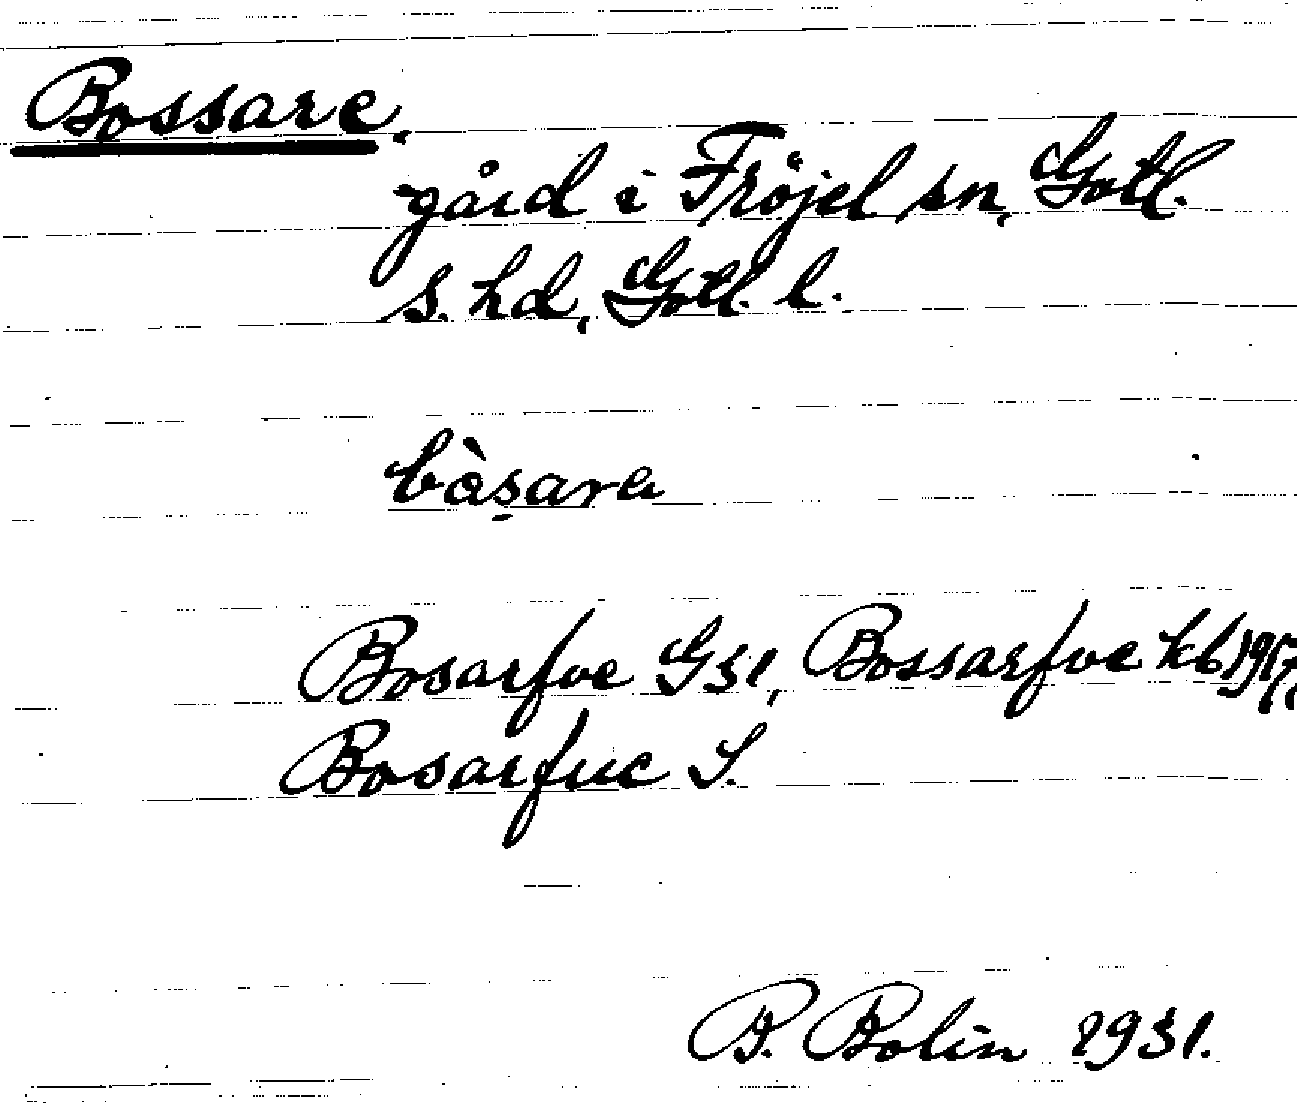 Bossare.
gård i Fröjel sn, Gotl.
s. hd, Gotl. l.
bòsara
Bosarfve G31, Bossarfve kb 1917,
Bosarfue S.
P. Bolin 1931.